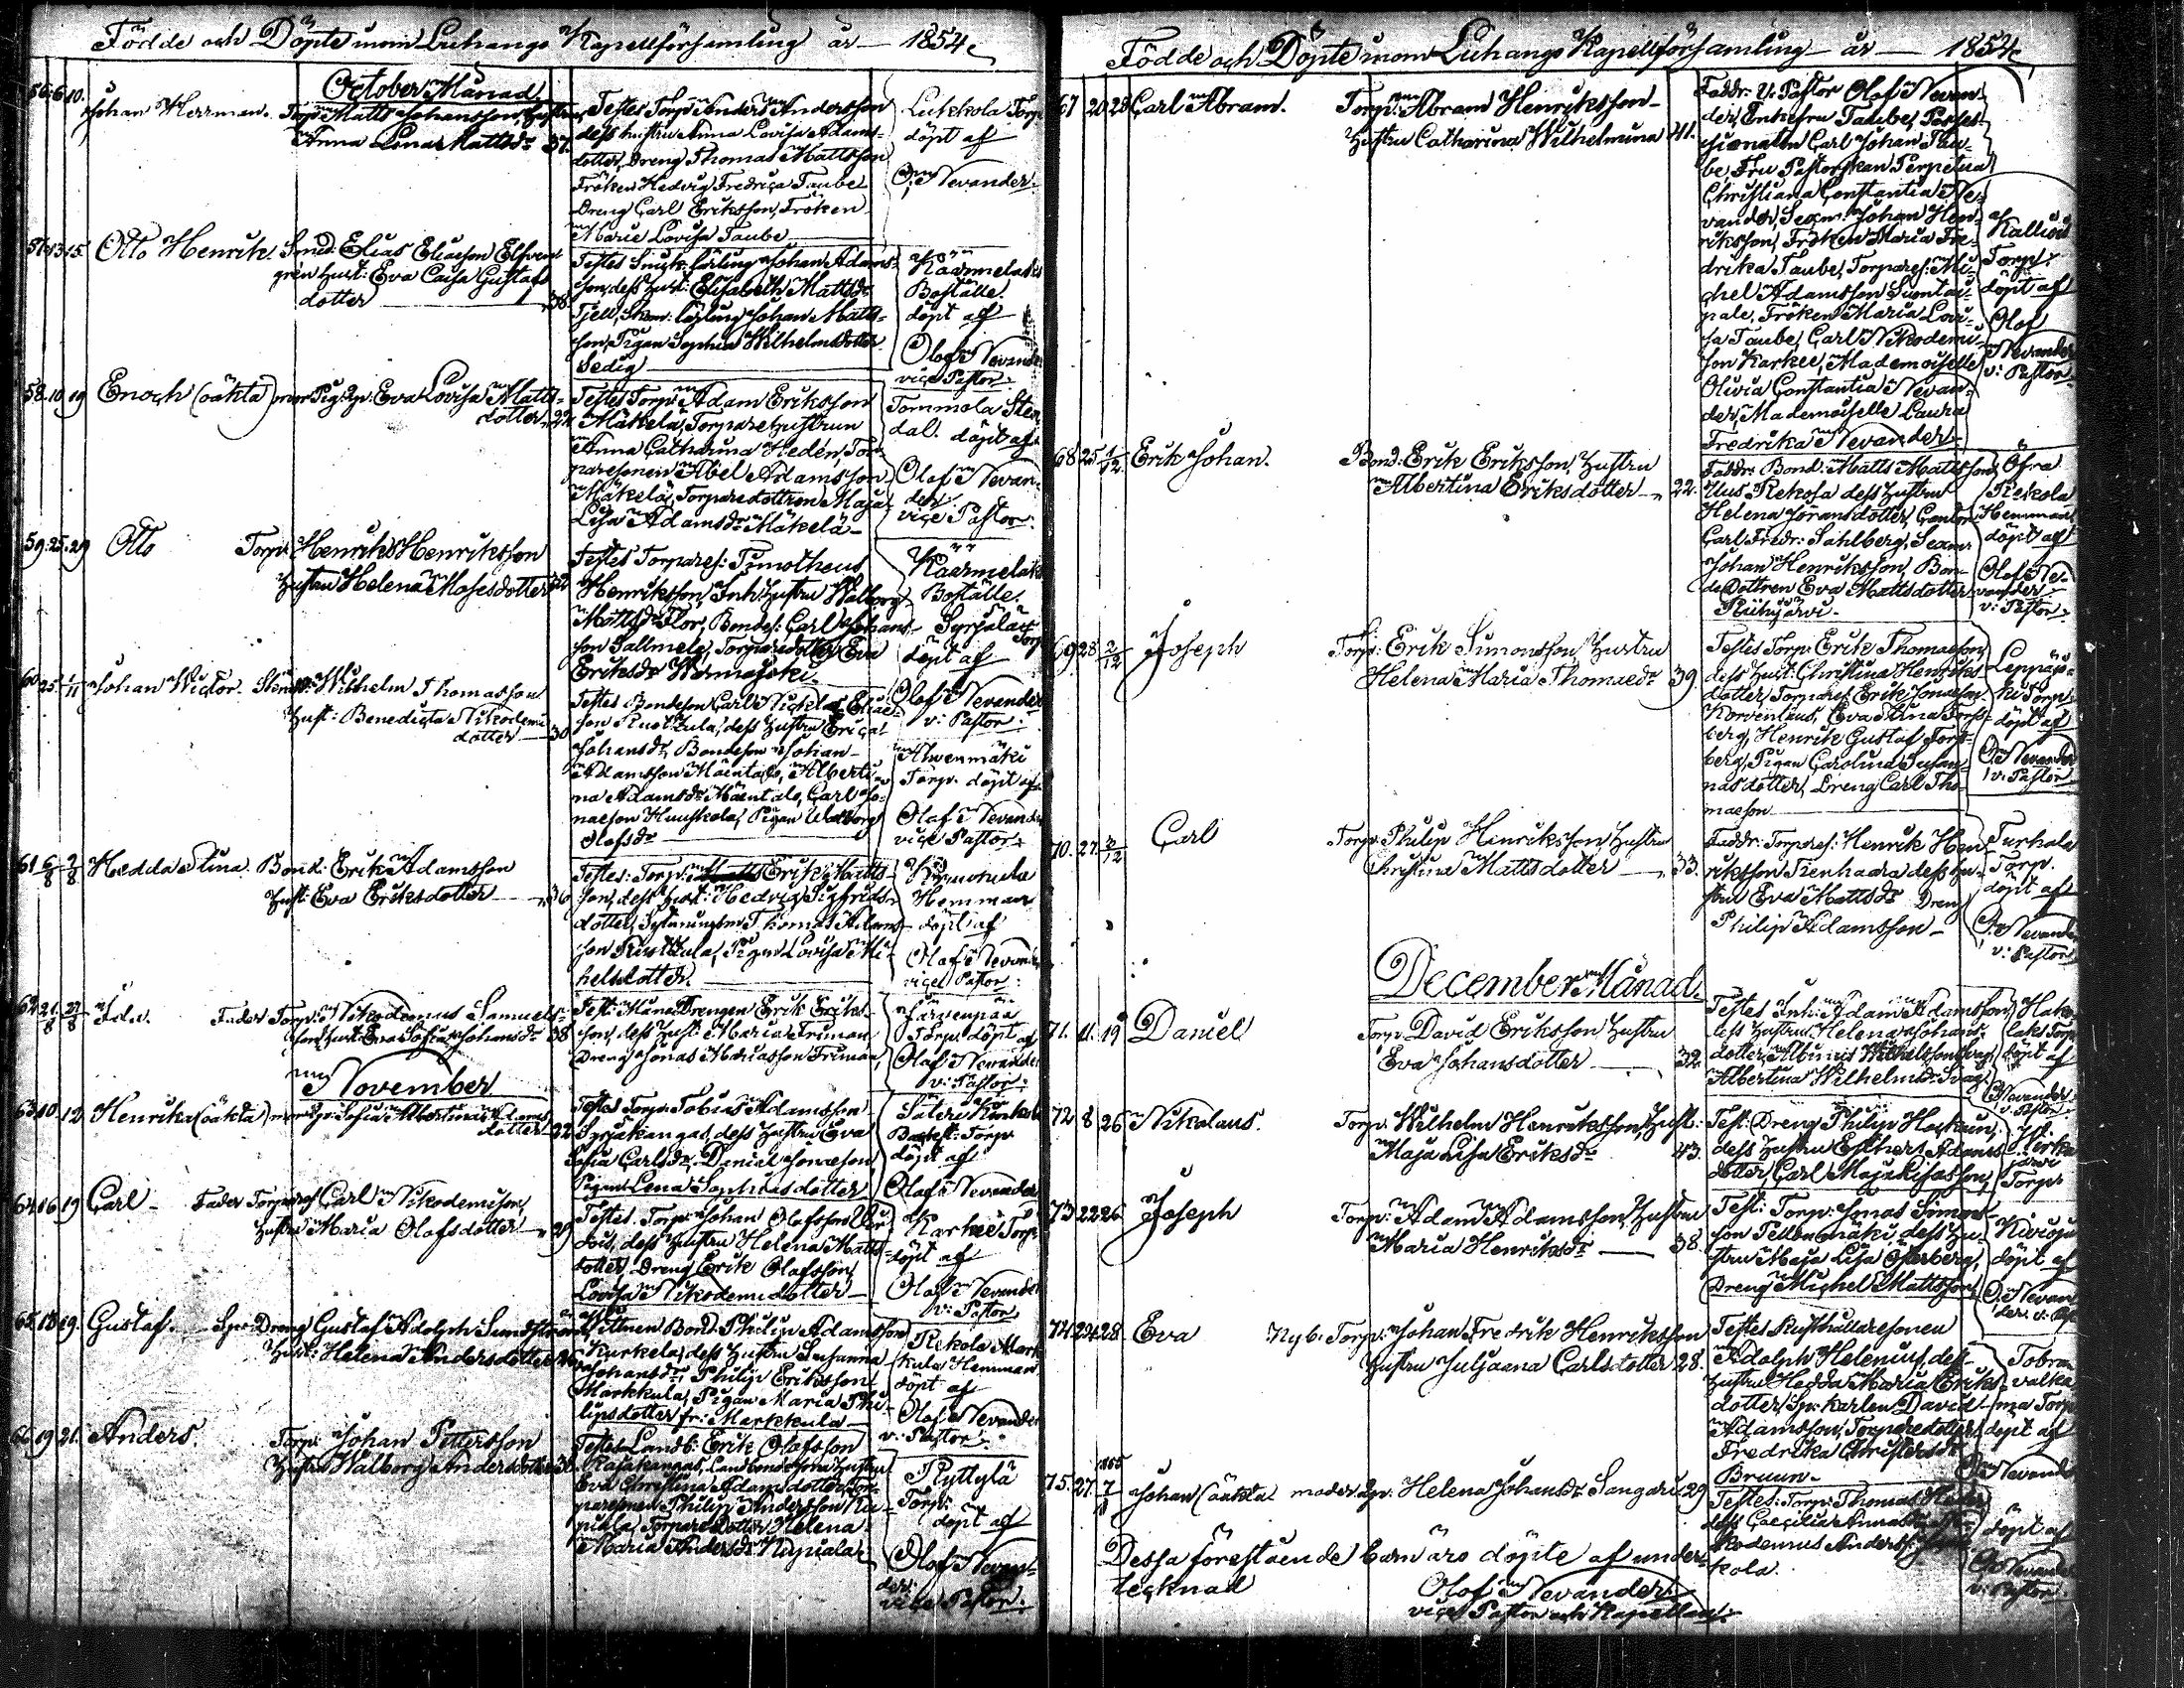 Födde och Döpte inom Luhango Kapellförsamling år 1854.
October Månad
56. 6 10. Johan Herrman. Torp: Matts Johansson, Hustrun
Anna Lena Mattsdr 37.
Testes Torp: Anders Andersson
dess hustru Anna Lovisa Adams-
dotter, Dreng Thomas Mattsson
Fröken Hedvig Fredrica Taube
Dreng Carl Eriksson, Fröken
Marie Lovisa Taube
Lukkola Torp
döpt af
O. Nevander.
57. 13 15. Otto Henrik. Smed: Elias Eliasson Elfven
gren Hust: Eva Caisa Gustafs
dotter 38
Testes Snick: lärling Johan Adams-
son, dess Hust: Elisabeth Mattsdr
Tjell, Skom: lärling Johan Matts-
son, Pigan Sophia Wilhelmsdotter
Sedig
Käärmelaks
Boställe.
döpt af
Olof Nevander
vice Pastor.
58. 10 19 Enoch (oäkta) mor Pig: Eva Lovisa Matts-
dotter 22
Testes Torp: Adam Eriksson
Mäkelä, Torpare hustrun
Anna Catharina Hedén, Tor-
paresonen Abel Adamsson
Mäkelä, Torparedottren Maja
Lisa Adamsdr Mäkelä
Tommola Sten
dal. döpt af
Olof Nevan-
der
vice Pastor.
59. 25. 29 Otto Torp: Henrik Henriksson
Hustru Helena Mosesdotter 22
Testes Torpares: Timotheus
Henriksson, Inh: hustru Walborg
Mattsdr Flor, Bondes: Carl Johans-
son Sallmela, Torparedotter Eva
Eriksdr
Käärmelaks
Boställe.
Syrjälä Torp
döpt af
Olof Nevander
v: Pastor.
60 25. 1/11 Johan Victor. Wilhelm Thomasson
Hust: Benedicta Nikodemi
dotter 30
Testes Bondeson Carl Nicklas Elias-
son dess hustru Erica
Johansdr, Bondeson Johan
Adamsson Mäntalo, Alberti-
na Adamsdr Mäntalo, Carl Jo-
naeson Huuskola, Pigan Walborg
Olofsdr
Ahvenmäki
Torp. döpt af
Olof Nevander
vice Pastor.
61 6/8 7/8 Hedda Stina. Bond: Erik Adamsson
Hust: Eva Eriksdotter 36
Testes: Torp: Erik Matts-
son, dess Hust: Hedvig Sigfrids-
dotter, Thomas Adams-
son Pigan Lovisa Mi-
helsdotter.
Hemman
döpt af
Olof Nevander
vice Pastor:
62 21/8 27/8 Ida. Fader Torp: Nikodemus Samuels-
son, Hust: Eva Sofia Johansdr 38
Test: Måna Drengen Erik Eriks-
son, dess Hust: Maria Friman
Dreng Jonas Mariasson Friman,
Järvenpää
Torp. döpt af
Olof Nevander
v: Pastor:
November
63 10. 12 Henrika (oäkta) mor Sofia Albertina Adams
dotter 22
Testes Torp: Tobias Adamsson
Syrjäkangas, dess Hustru Eva
Sofia Carlsdr, Daniel Jonaeson
Pigan Lena Sophiasdotter
Torp
döpt af
Olof Nevander
64. 16. 19 Carl Fader Torpares: Carl Nikodemison,
Hustru Maria Olofsdotter 29
Testes Torp: Johan Olofsson
dess Hustru Helena Matts-
dotter, Dreng Erik Olofsson
Lovisa Nikodemidotter
Karkee Torp
döpt af
Olof Nevander
v: Pastor
65. 18 19. Gustaf. Dreng Gustaf Adolph Sundström
Hust: Helena Andersdotter 26
Vittnen Bond: Philip Adamsson
Kurkela, dess Hustru Susanna
Johansdr, Philip Eriksson
Markkula, Pigan Maria Phi-
lipsdotter fr: Markkula
Rekola Mark
kula Hemman
döpt af
Olof Nevander
v: Pastor
66. 19 21. Anders. Torp: Johan Pettersson
Hustru Walborg Andersdotter
Testes Landb: Erik Olofsson
Rajakangas, Landbondesons hustru
Eva Christina Adamsdotter, Tor-
paresonen Philip Andersson
Torparedotter Helena
Maria Andersdr
Ryttylä
Torp:
döpt af
Olof Nevan-
der.
vice Pastor.
Födde och Döpte inom Luhango Kapellförsamling år 1854
67 20 23 Carl Abram. Torp: Abram Henriksson
Hustru Catharina Wilhelmina 41.
Faddr: V: Pastor Olof Nevan-
der, Enkefru Taube, Posses-
sionaten Carl Johan Tau-
be, Fru Pastorskan Perpetua
Christiana Constantia Ne-
vander, Sexm: Johan Hen-
riksson, Fröken Maria Fre-
drika Taube, Torpares: Mi-
chel Adamsson Suontai-
pale, Fröken Maria Lovi-
sa Taube, Carl Nikodemi-
son Karkee, Mademoiselle
Olivia Constantia Nevan-
der, Mademoiselle Laura
Fredrika Nevander
Kallius
Torp.
döpt af
Olof
Nevander
v: Pastor
68 25 1/12 Erik Johan. Bond: Erik Eriksson, Hustru
Albertina Eriksdotter 22.
Faddr: Bond: Matts Mattsson
Uus Rekola dess Hustru
Helena Göransdotter, Cantor
Carl Fredr: Sahlberg, Sexm:
Johan Henriksson, Bon-
de Dottren Eva Mattsdotter
Riihijärvi
Öfra
Rekola
Hemman
döpt af
Olof Ne-
vander
v: Pastor.
69 28 2/12 Joseph Torp: Erik Simonsson, Hustru
Helena Maria Thomaedr 39.
Testes Torp: Erik Thomaeson
dess Hust: Christina Henriks-
dotter, Torpares: Erik Jonaeson
Korvenlaus, Eva Stina Fors-
berg, Henrik Gustaf Fors-
berg, Pigan Carolina Susan-
nasdotter, Dreng Carl Tho-
maeson
Leppäjo-
ki Torp
döpt af
O. Nevander
v: Pastor
70. 27. 2/12 Carl Torp: Philip Henriksson, Hustru
Christina Mattsdotter 33.
Faddr: Torpares: Henrik Hen-
riksson Tienhaara dess Hu-
stru Eva Mattsdr Dreng
Philip Adamsson
Turhala
Torp.
döpt af
O. Nevander
v: Pastor
December Månad.
71. 11. 19 Daniel Torp: David Eriksson, Hustru
Eva Johansdotter 32
Testes Inh: Adam Adamsson,
dess Hustru Helena Johans-
dotter, Wilhelmsson Svag
Albertina Wilhelmsdr Svag
Hako-
laks Torp
döpt af
O. Nevander
v. Pastor
72 8 26 Nikolaus. Torp: Wilhelm Henriksson, Hust:
Maja Lisa Eriksdr 43.
Test: Dreng Philip
dess Hustru Esther Adams
dotter, Carl Maja Lisasson
Torp
73 22 26 Joseph Torp: Adam Adamsson, Hustru
Maria Henriksdr 38
Test: Torp: Jonas Simon-
son dess Hu-
stru Maja Lisa Österberg,
Dreng Michel Mattsson
Kivioja
döpt af
O. Nevan-
der. v: Pas
74 23 28. Eva Nyb: Torp: Johan Fredrik Henriksson
Hustru Juljaana Carlsdotter 28.
Testes Rusthållaresonen
Adolph Helenius, dess
Hustru Hedda Maria Eriks-
dotter, karlen David
Adamsson, Torparedottern
Fredrika Christersdr
Bruun.
Torp
döpt af
O. Nevander
75. 27. 1855 7/1 Johan (oäkta) moder Helena Johansdr Sangari 29
Testes: Torp: Thomas
dess Caecilia
kodemus Anderss:
kola.
döpt af
O. Nevander
v: Pastor
Dessa förestående barn äro döpte af under-
tecknad
Olof Nevander
vice Pastor och Kapellan.